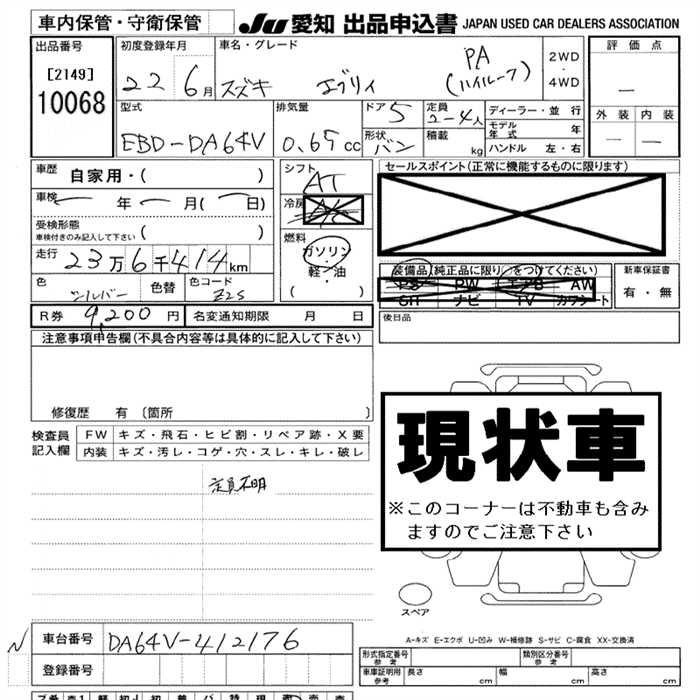 車内保管・守衛保管 JU 愛知 出品申込書 JAPAN USED CAR DEALERS ASSOCIATION
出品番号
[2149]
10068
初度登録年月
22 6月
車名・グレード
スズキ エブリィ PA
(ハイルーフ)
2WD
・
4WD
評価点
—
外装 内装
— —
型式
EBD-DA64V
排気量
0.65cc
ドア 5
形状 バン
定員 2-4人
積載 kg
ディーラー・並行
モデル年式 年
ハンドル 左・右
車歴 自家用・( )
車検 ー 年 ー 月(ー 日)
受検形態
車検付きのみ記入して下さい ( )
走行 23万6千414km
色 シルバー 色替 色コード Z2S
シフト AT
冷房 A/C
燃料
ガソリン
軽・油
( )
セールスポイント(正常に機能するものに限ります)
装備品(純正品に限り○をつけてください)
PS PW エアB AW
SR ナビ TV カワシート
新車保証書
有・無
R券 9,200円 名変通知期限 月 日
後日品
注意事項申告欄(不具合内容等は具体的に記入して下さい)
修復歴 有 〔箇所 〕
検査員記入欄
FW キズ・飛石・ヒビ割・リペア跡・X要
内装 キズ・汚レ・コゲ・穴・スレ・キレ・破レ
定員不明
現状車
※このコーナーは不動車も含み
ますのでご注意下さい
スペア
A-キズ E-エクボ U-凹み W-補修跡 S-サビ C-腐食 XX-交換済
N 車台番号 DA64V-412176
登録番号
形式指定番号 参考 類別区分番号 参考
車庫証明用 参考 長さ cm 幅 cm 高さ cm